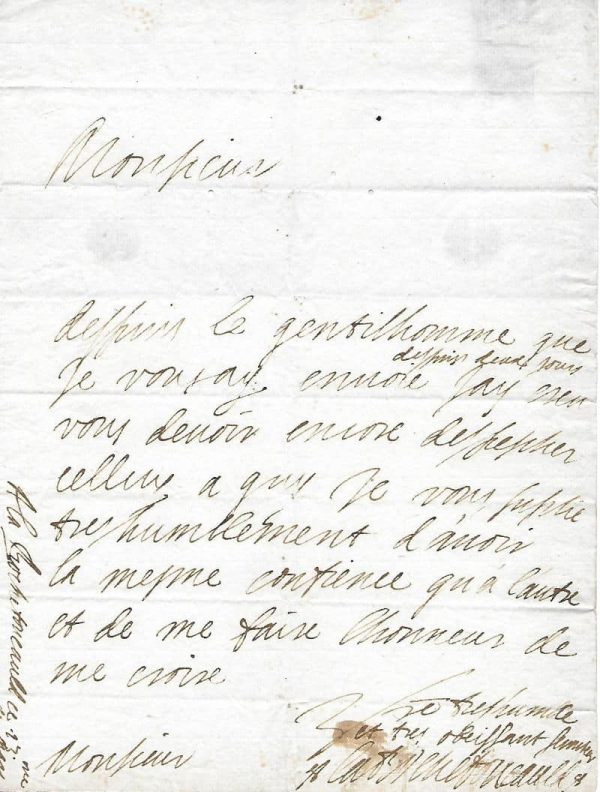 Monsieur
despuis le gentilhomme que
despuis deux jours
Je vous ay envoié jay creu
vous devoir encore despescher
celluy a quy Je vous suplie
treshumblement d'avoir
la mesme confience qu'a l'autre
et de me faire l'honneur de
me croire
Monsieur
Vre treshumble
et tres obeissant serviteur
La Rochefoucauld
A la Rochefoucauld ce 27 me